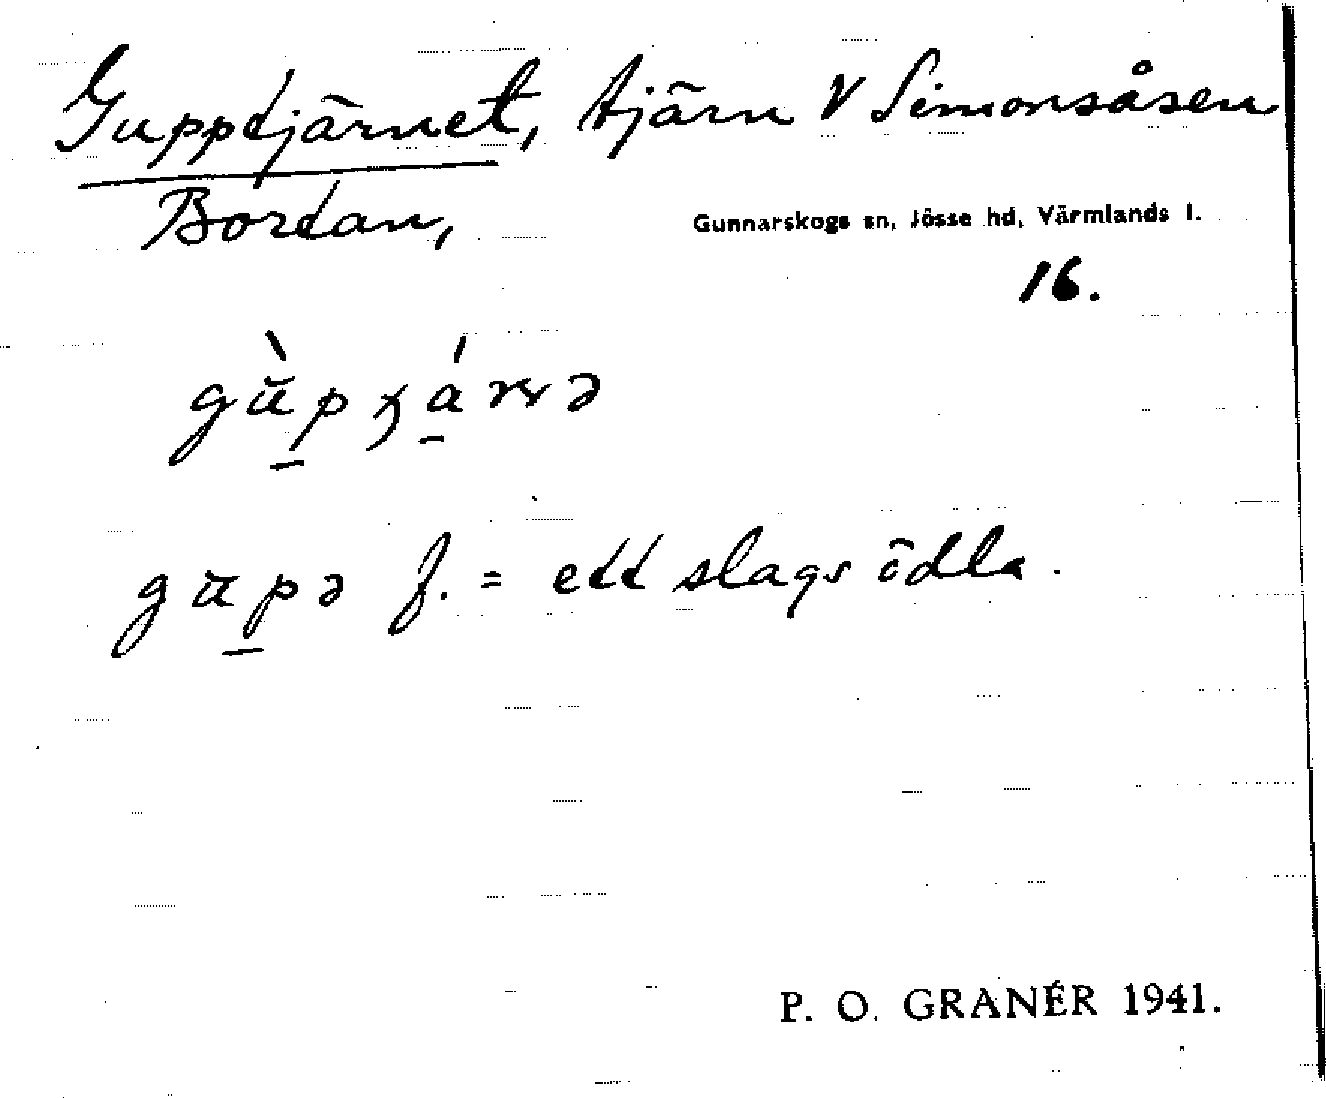 Gupptjärnet, tjärn V Simonsåsen
Bortan,
Gunnarskogs sn, Jösse hd, Värmlands l.
16.
gup̠a f. = ett slags ödla.
P. O. GRANÉR 1941.